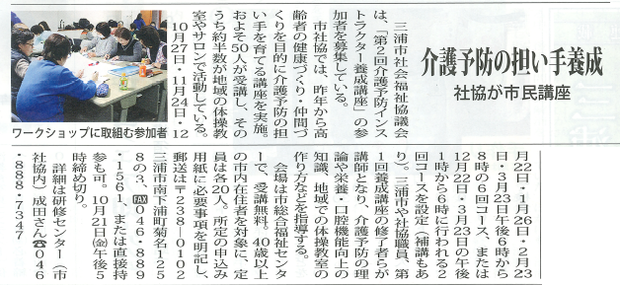 介護予防の担い手養成
社協が市民講座
三浦市社会福祉協議会
は、「第2回介護予防インス
トラクター養成講座」の参
加者を募集している。
市社協では、昨年から高
齢者の健康づくり・仲間づ
くりを目的に介護予防の担
い手を育てる講座を実施。
およそ50人が受講し、その
うち約半数が地域の体操教
室やサロンで活動している。
10月27日・11月24日・12
ワークショップに取組む参加者
月22日・1月26日・2月23
日・3月23日午後6時から
8時の6回コース、または
12月22日・3月23日の午後
1時から6時に行われる2
回コースを設定(補講もあ
り)。三浦市や社協職員、第
1回養成講座の修了者らが
講師となり、介護予防の理
論や栄養・口腔機能向上の
知識、地域での体操教室の
作り方などを指導する。
会場は市総合福祉センタ
ーで、受講無料。40歳以上
の市内在住者を対象に、定
員は各20人。所定の申込み
用紙に必要事項を明記し、
郵送は〒238-0102
三浦市南下浦町菊名125
8の3、FAX046・889
・1561、または直接持
参も可。10月21日(金)午後5
時締め切り。
詳細は研修センター(市
社協内)成田さん☎046
・888・7347